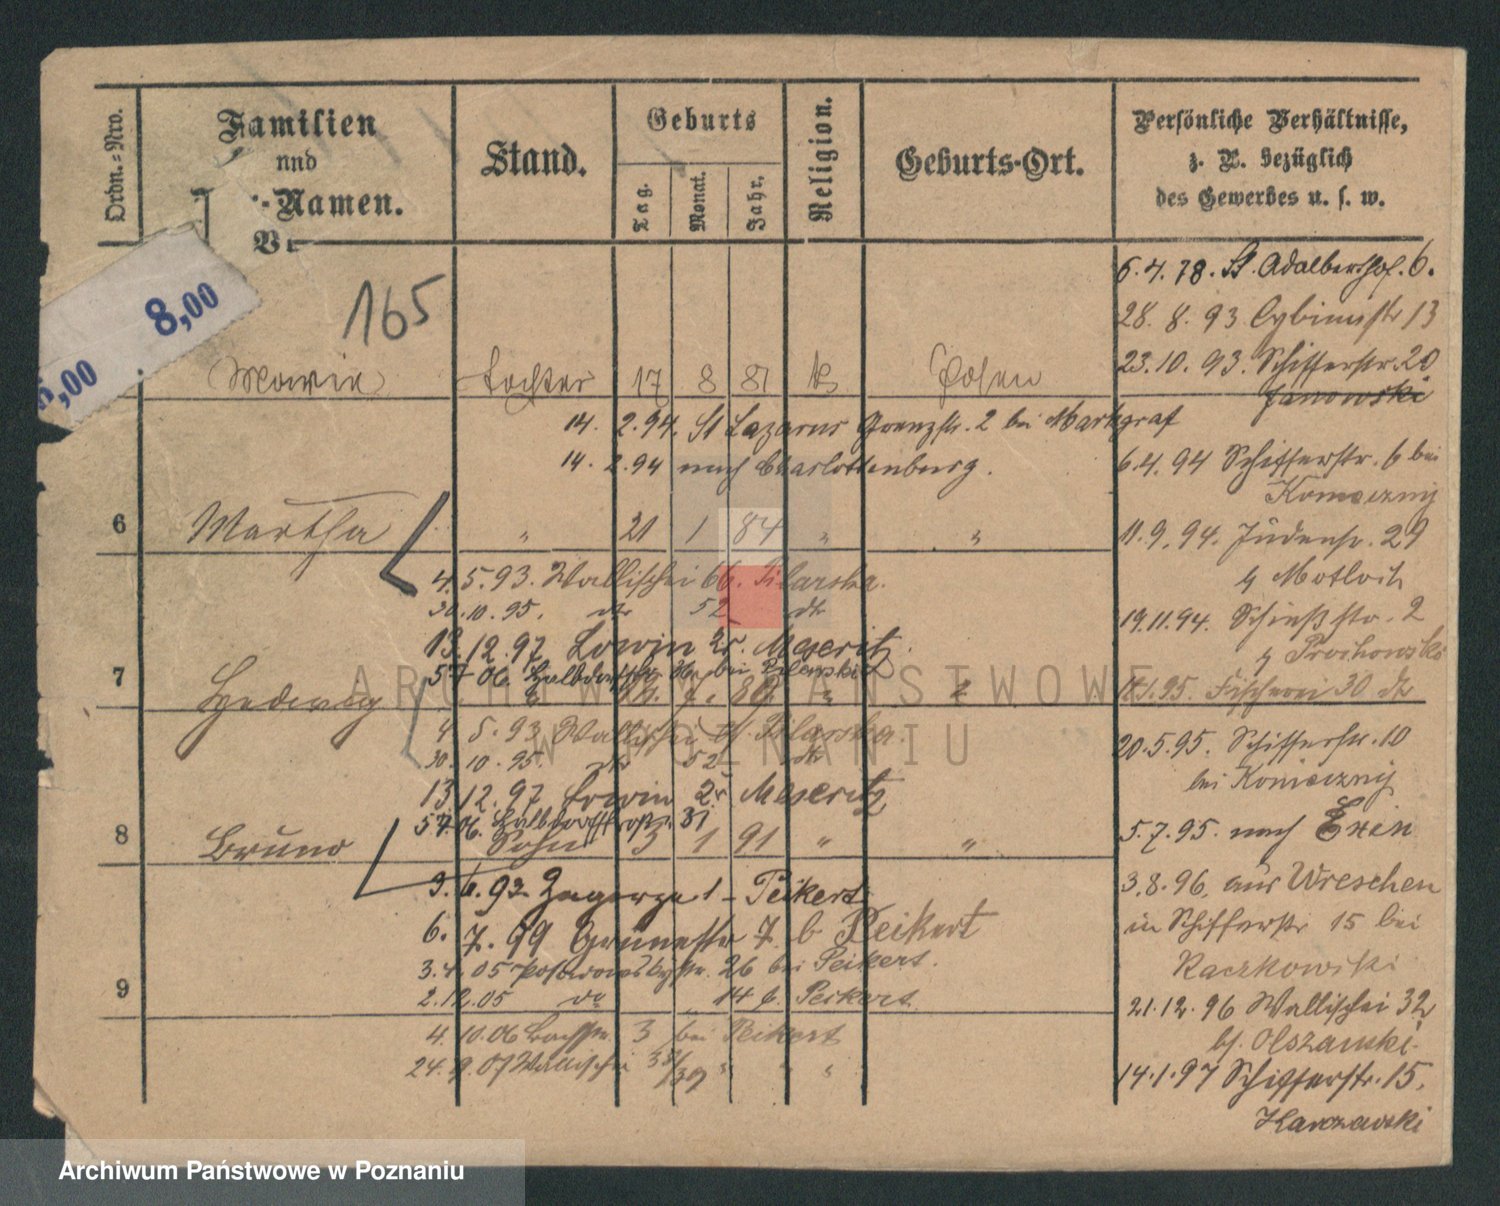 Ordn.=Nro.
Familien
und
Vor-Namen.
Stand.
Geburts
Tag.
Monat.
Jahr.
Religion.
Geburts-Ort.
Persönliche Verhältnisse,
z. B. bezüglich
des Gewerbes u. s. w.
8,00
5,00
165
6.4.78. St. Adalberthof. 6.
28. 8. 93 Cybinastr 13
23.10.93. Schifferstr. 20
Janowski
Marie Tochter 17 8 81 k Posen
14. 2.94. St Lazarus Grenzstr. 2 bei Markgraf
14. 2.94 nach Charlottenburg.
6.4.94 Schifferstr. 6 bei
Konieczny
6 Martha " 21 1 84 " "
11.9.94. Judenstr. 29
b Motloch
4.5.93. Wallischei 66. Pilarska.
30.10.95. do 52 do
19.11.94. Schießstr. 2
13.12.97 Meseritz
5.7.06. Halbdorfstr. bei
7 Hedwig
Fischerei 30 do
4 5.93 Wallischei Pilarska.
30.10.95 do 52 do
20.5.95. Schifferstr. 10
bei Konieczny
13.12.97 Meseritz
5.7.06. Halbdorfstraße 31
8 Bruno Sohn 3 1 91 " "
5.7.95. nach Exin
3.6.92 Zagorze 1 - Peikert
3.8.96, aus Wreschen
in Schifferstr 15 bei
Raczkowski
6. 7.99 Grünestr 7. b Peikert
3.4.05 26 bei Peikert.
9
2.12.05 do 14 b. Peikert
21.12.96 Wallischei 32
b. Olszanski.
4.10.06 3 bei Peikert
24.9.07 Wallischei "
14.1.97 Schifferstr. 15.
ARCHIWUM PAŃSTWOWE
W POZNANIU
Archiwum Państwowe w Poznaniu